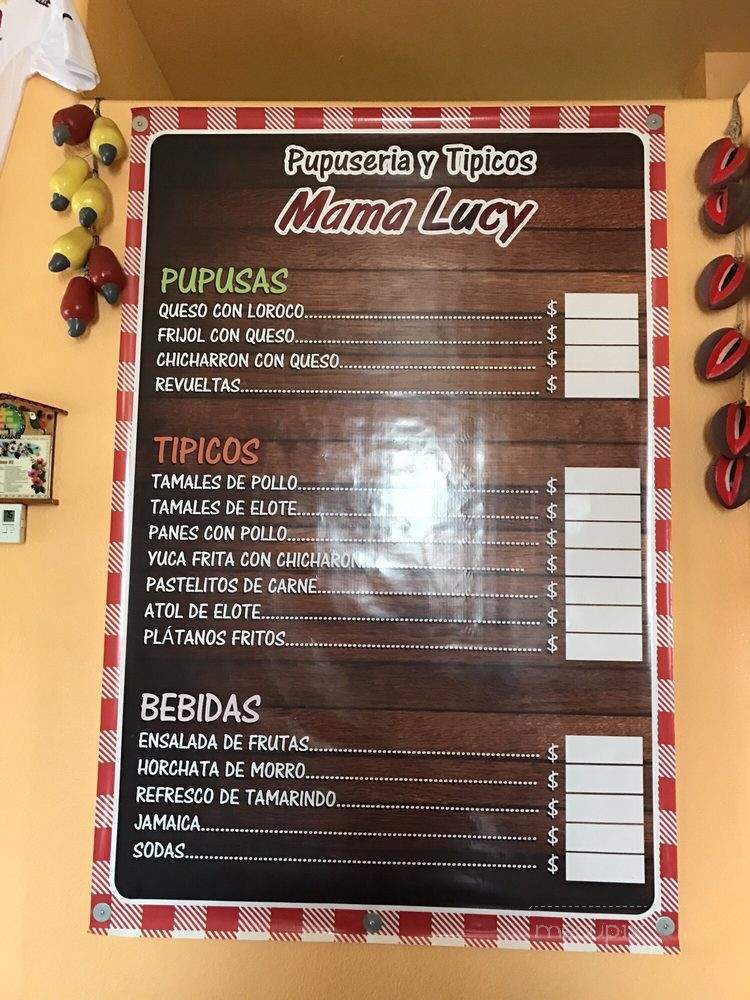 Pupuseria y Tipicos
Mama Lucy
PUPUSAS
QUESO CON LOROCO........ $
FRIJOL CON QUESO........ $
CHICHARRON CON QUESO........ $
REVUELTAS........ $
TIPICOS
TAMALES DE POLLO........ $
TAMALES DE ELOTE........ $
PANES CON POLLO........ $
YUCA FRITA CON CHICHARON........ $
PASTELITOS DE CARNE........ $
ATOL DE ELOTE........ $
PLÁTANOS FRITOS........ $
BEBIDAS
ENSALADA DE FRUTAS........ $
HORCHATA DE MORRO........ $
REFRESCO DE TAMARINDO........ $
JAMAICA........ $
SODAS........ $